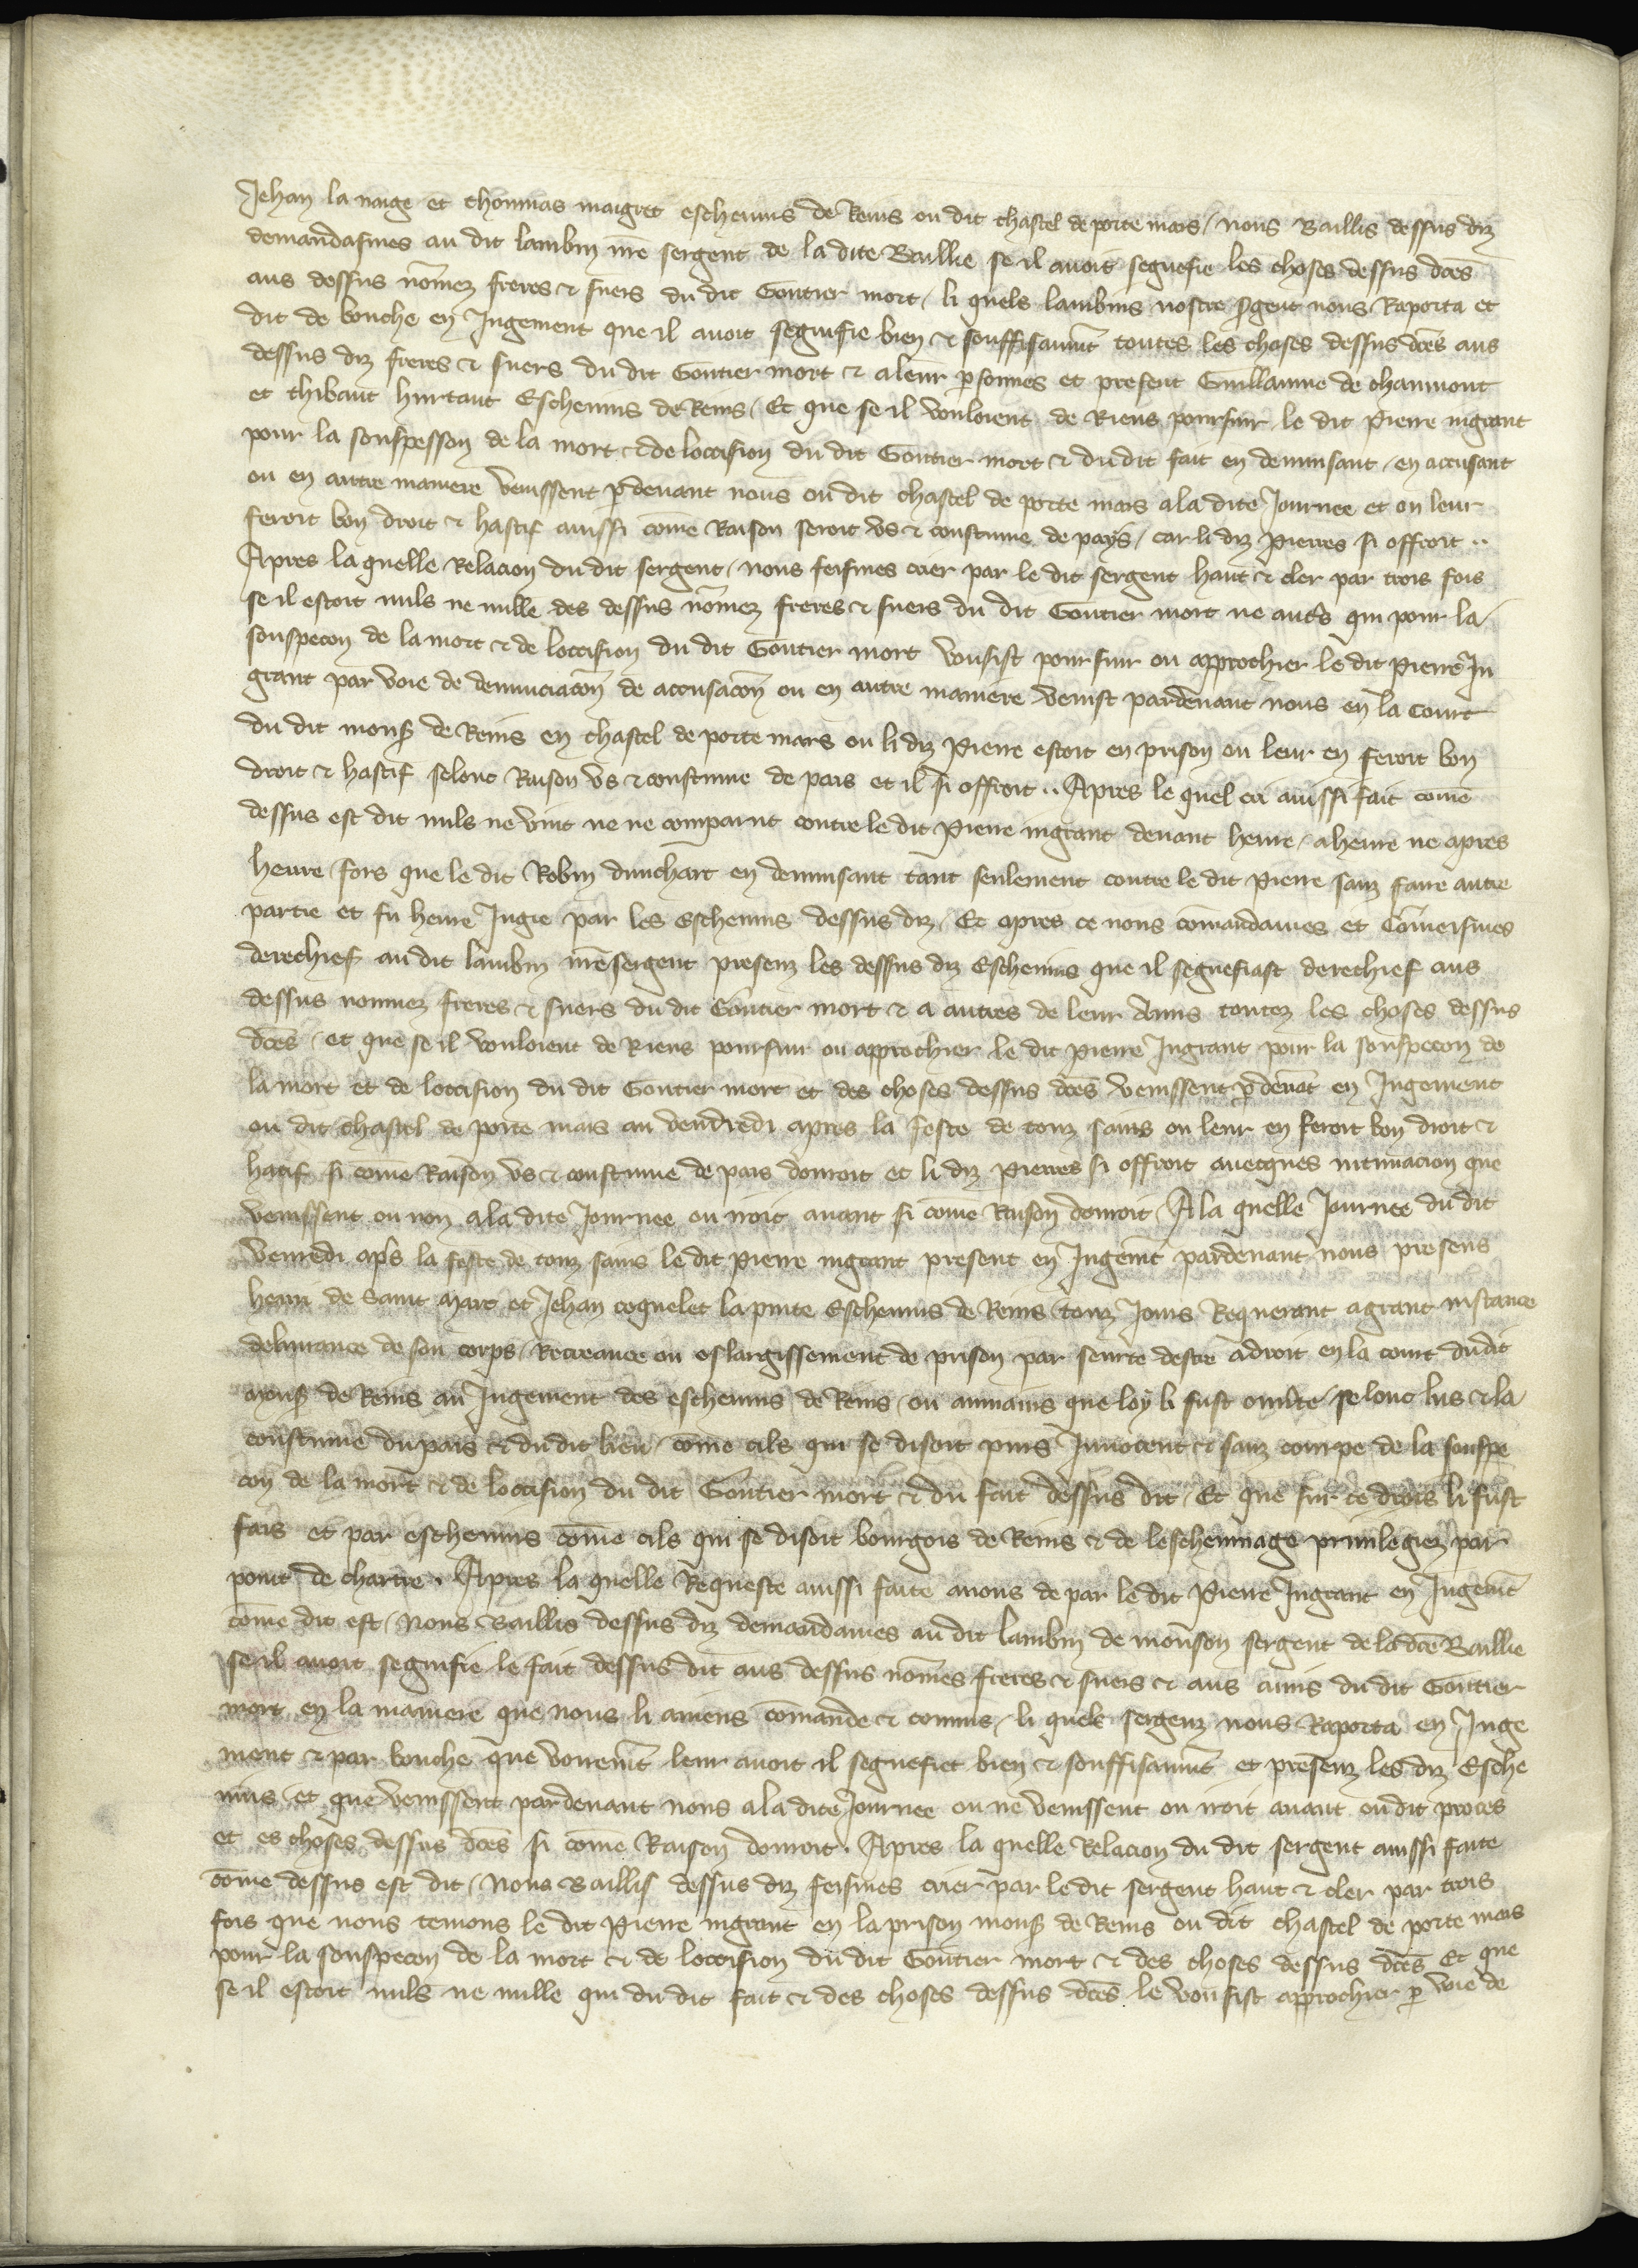 Jehan la naige et thommas maigret eschevins de Reins ou dit chastel de porte mars / nous Baillis dessus diz
demandasmes au dit lambin nr̄e sergent de la dite Baillie se il avoit segnefie les choses dessus dc̄es
aus dessus nōmez freres & suers du dit Goutier mort / li quels lambins nostre sgent nous Raporta et
dit de bouche en Jugement que il avoit segnifie bien & souffisaumt̄ toutes les choses dessus dc̄es aus
dessus diz freres & suers du dit Goutier mort & a leur psonnes et present Guillaume de chaumont
et thibaut hurtaut Eschevins de Reins / Et que se il vouloient de Riens poursuir le dit Pierre ingrant
pour la souspesson de la mort & de loccision du dit Goutier mort & du dit fait en denunsant / en accusant
ou en autre maniere venissent pdevant nous ou dit chastel de porte mars a la dite Journee et on leur
feroit bon droit & hastif aussi cōme Raison seroit us & coustume de pays / car li diz Pierres si offroit ..
Apres la quelle Relacion du dit sergent / nous feismes crier par le dit sergent haut & cler par trois fois
se il estoit nuls ne nulle des dessus nōmez freres & suers du dit Goutier mort ne autr̄s qui pour la
souspecon de la mort & de loccision du dit Goutier mort vousist poursuir ou approchier le dit Pierre In
grant par voie de denunciacōn de accusacōn ou en autre maniere venist pardevant nous en la Court
du dit mons̄ de Reins en chastel de porte mars ou li diz Pierre estoit en prison on leur en feroit bon
droit & hastif selonc Raison us & coustume de pais et il si offroit .. Apres le quel cri aussi fait cōme
dessus est dit nuls ne vint ne ne comparut contre le dit Pierre ingrant devant heure / a heure ne apres
heure / fors que le dit Robin dunchart en denunsant tant seulement contre le dit Pierre sanz faire autre
partie et fu heure Jugie par les Eschevins dessus diz / Et apres ce nous cōmandames et Cōmeismes
derechief au dit lambin nr̄e sergent presenz les dessus diz Eschevins que il segnefiast derechief aus
dessus nommez freres & suers du dit Goutier mort & a autres de leur Amis toutez les choses dessus
dc̄es / et que se il vouloient de Riens poursuir ou approchier le dit pierre Ingrant pour la souspecon de
la mort et de loccision du dit Goutier mort et des choses dessus dc̄es venissent pdevāt en Jugement
ou dit chastel de porte mars au vendredi apres la feste de touz sains on leur en feroit bon droit &
hatif si cōme Raison us & coustume de pais donroit et li diz Pierres si offroit avecques intimacion que
venissent ou non a la dite Journee on iroit avant si cōme Raison donroit / A la quelle Journee du dit
venredi aps̄ la feste de touz sains le dit Pierre ingrant present en Jugemt̄ pardevant nous presens
henri de Saint Marc et Jehan coquelet la pinte Eschevins de Reins / touz Jours Requerant a grant instance
delivrance de son corps / Recreance ou eslargissement de prison par seurte destre a droit en la court dudit
mons̄ de Reins au Jugement des eschevins de Reins / ou aumains que loy li fust ouv̄te / selonc lus & la
coustume du pais & du dit lieu / cōme cils qui se disoit purs Innocent & sanz courpe de la souspe
con de la mort & de loccision du dit Goutier mort & du fait dessus dit / Et que sur ce drois li fust
fais et par eschevins cōme cils qui se disoit bourgois de Reins & de leschevinage privilegiez par
point de chartre . Apres la quelle Requeste aussi faite a nous de par le dit Pierre Ingrant en Jugemt̄
cōme dit est / Nous Baillis dessus diz demandames au dit lambin de mouson sergent de la dc̄e Baillie
se il avoit segnifie le fait dessus dit aus dessus nōmes freres & suers & aus amis du dit Goutier
mort en la maniere que nous li aviens cōmande & commis / li quels sergenz nous Raporta en Juge
ment & par bouche que vouremt̄ leur avoit il segnefiet bien & souffisaumt̄ et presenz les diz Esche
vins / et que venissent pardevant nous a la dite Journee ou ne venissent on iroit avant ou dit proces
et es choses dessus dc̄es si cōme Raison donroit . Apres la quelle Relacion du dit sergent aussi faite
cōme dessus est dit / Nous Baillis dessus diz feismes crier par le dit sergent haut & cler par trois
fois que nous teniens le dit Pierre ingrant en la prison mons̄ de Reins ou dit chastel de porte mars
pour la souspecon de la mort & de loccision du dit Goutier mort & des choses dessus dc̄es Et que
se il estoit nuls ne nulle qui du dit fait & des choses dessus dc̄es le vousist approchier p voie de